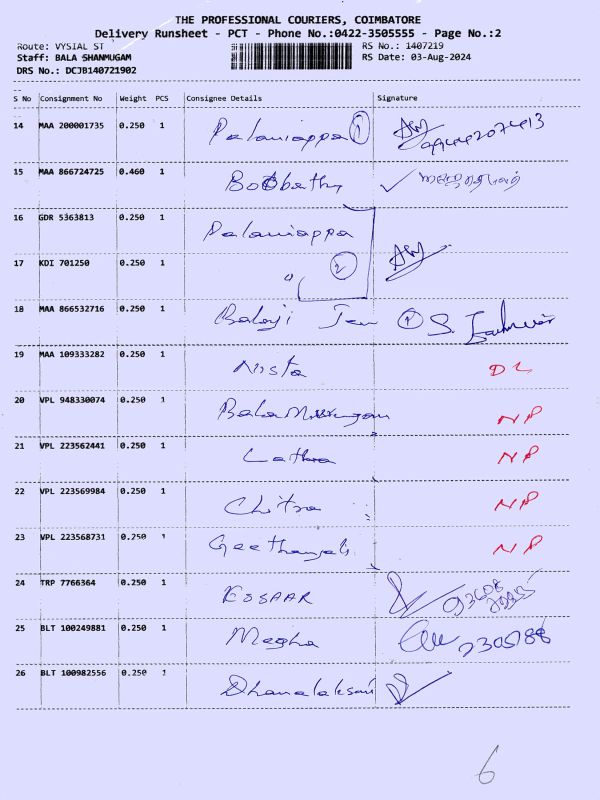 THE PROFESSIONAL COURIERS, COIMBATORE
Delivery Runsheet - PCT - Phone No.:0422-3505555 - Page No.:2
Route: VYSIAL ST RS No.: 1407219
Staff: BALA SHANMUGAM RS Date: 03-Aug-2024
DRS No.: DCJB140721902
S No Consignment No Weight PCS Consignee Details Signature
14 MAA 200001735 0.250 1 Palaniappa 1 9944207413
15 MAA 866724725 0.460 1 Boobathy
16 GDR 5363813 0.250 1 Palaniappa
17 KDI 701250 0.250 1 " 2
18 MAA 866532716 0.250 1 Balaji Jew 1 S.
19 MAA 109333282 0.250 1 Nista DL
20 VPL 948330074 0.250 1 Bala Murugan NP
21 VPL 223562441 0.250 1 Latha NP
22 VPL 223569984 0.250 1 Chitra NP
23 VPL 223568731 0.250 1 Geethanjali NP
24 TRP 7766364 0.250 1 ESSAAR
25 BLT 100249881 0.250 1 Megha
26 BLT 100982556 0.250 1 Dhanalaksmi
6